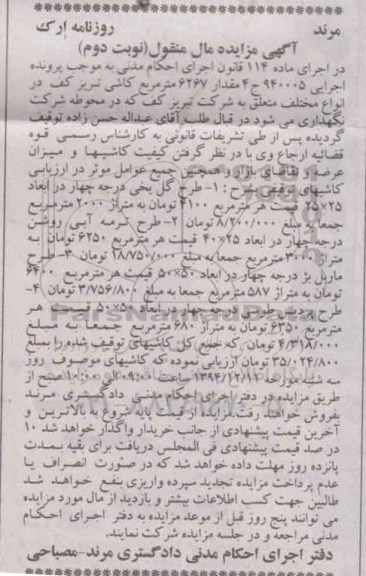 مرند روزنامه ارک
آگهی مزایده مال منقول(نوبت دوم)
در اجرای ماده ۱۱۴ قانون اجرای احکام مدنی به موجب پرونده
اجرایی ۹۴۰۰۰۵ ج ۴ مقدار ۶۲۶۷ مترمربع کاشی تبریز کف در
انواع مختلف متعلق به شرکت تبریز کف که در محوطه شرکت
نگهداری می شود در قبال طلب آقای عبداله حسن زاده توقیف
گردیده پس از طی تشریفات قانونی به کارشناس رسمی قوه
قضائیه ارجاع وی با در نظر گرفتن کیفیت کاشیها و میزان
عرضه و تقاضای بازار و همچنین جمیع عوامل موثر در ارزیابی
کاشیهای توقیفی بشرح : ۱- طرح گل یخی درجه چهار در ابعاد
۲۵×۲۵ قیمت هر مترمربع ۴۱۰۰ تومان به متراژ ۲۰۰۰ مترمربع
جمعا به مبلغ ۸/۲۰۰/۰۰۰ تومان ۲- طرح ترمه آبی روشن
درجه چهار در ابعاد ۲۵×۴۰ قیمت هر مترمربع ۶۲۵۰ تومان به
متراژ ۳۰۰۰ مترمربع جمعا به مبلغ ۱۸/۷۵۰/۰۰۰ تومان ۳- طرح
ماربل بژ درجه چهار در ابعاد ۵۰×۵۰ قیمت هر مترمربع ۶۴۰۰
تومان به متراژ ۵۸۷ مترمربع جمعا به مبلغ ۳/۷۵۶/۸۰۰ تومان ۴-
طرح پردیس طرح درجه چهار در ابعاد ۵۰×۵۰ قیمت هر
مترمربع ۶۳۵۰ تومان به متراژ ۶۸۰ مترمربع جمعا به مبلغ
۴/۳۱۸/۰۰۰ تومان که جمع کل کاشیهای توقیف شده را بمبلغ
۳۵/۰۲۴/۸۰۰ تومان ارزیابی نموده که کاشیهای موصوف روز
سه شنبه مورخه ۱۳۹۴/۱۲/۱۱ ساعت ۰۹:۰۰ الی ۱۰:۰۰ صبح از
طریق مزایده در دفتر اجرای احکام مدنی دادگستری مرند
بفروش خواهند رفت مزایده از قیمت پایه شروع به بالاترین و
آخرین قیمت پیشنهادی از جانب خریدار واگذار خواهد شد ۱۰
در صد قیمت پیشنهادی فی المجلس دریافت برای بقیه بمدت
پانزده روز مهلت داده خواهد شد که در صورت انصراف یا
عدم پرداخت مزایده تجدید سپرده واریزی بنفع خواهد شد
طالبین جهت کسب اطلاعات بیشتر و بازدید از مال مورد مزایده
می توانند پنج روز قبل از موعد مزایده به دفتر اجرای احکام
مدنی مراجعه و در جلسه مزایده شرکت نمایند.
دفتر اجرای احکام مدنی دادگستری مرند-مصباحی